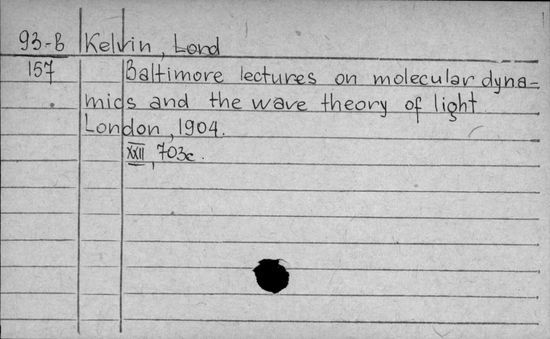 93-B Kelvin, Lord
157 Baltimore lectures on molecular dyna-
mics and the wave theory of light
London, 1904.
XXII, 703c.